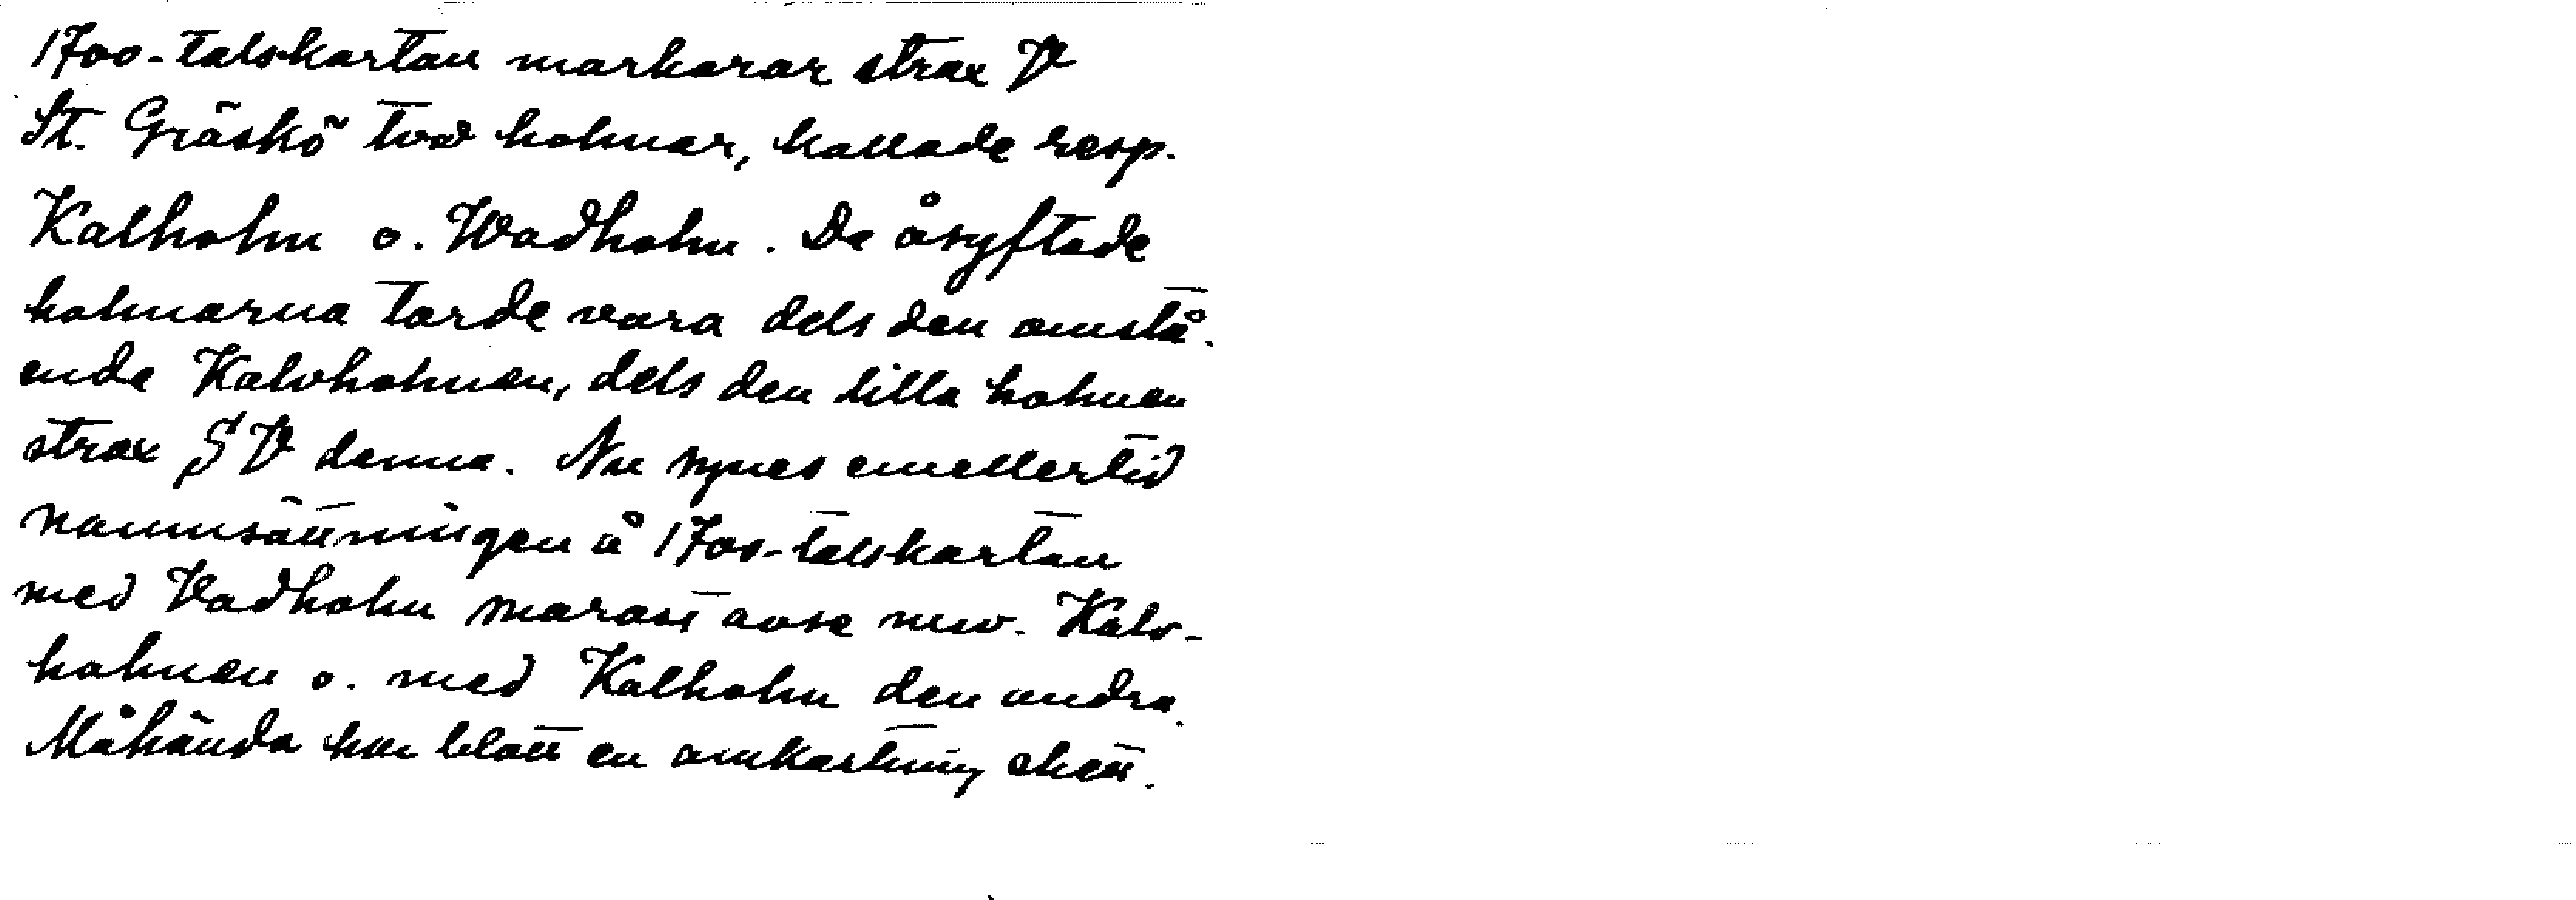 1700-talskartan markerar strax V
St. Gräskö två holmar, kallade resp.
Kalholm o. Wadholm. De åsyftade
holmarna torde vara dels den omstå-
ende Kalvholmen, dels den lilla holmen
strax SV denna. Nu synes emellertid
namnsättningen å 1700-talskartan
med Vadholm närmast avse nuv. Kalv-
holmen o. med Kalholm den andra.
Måhända har blott en omkastning skett.